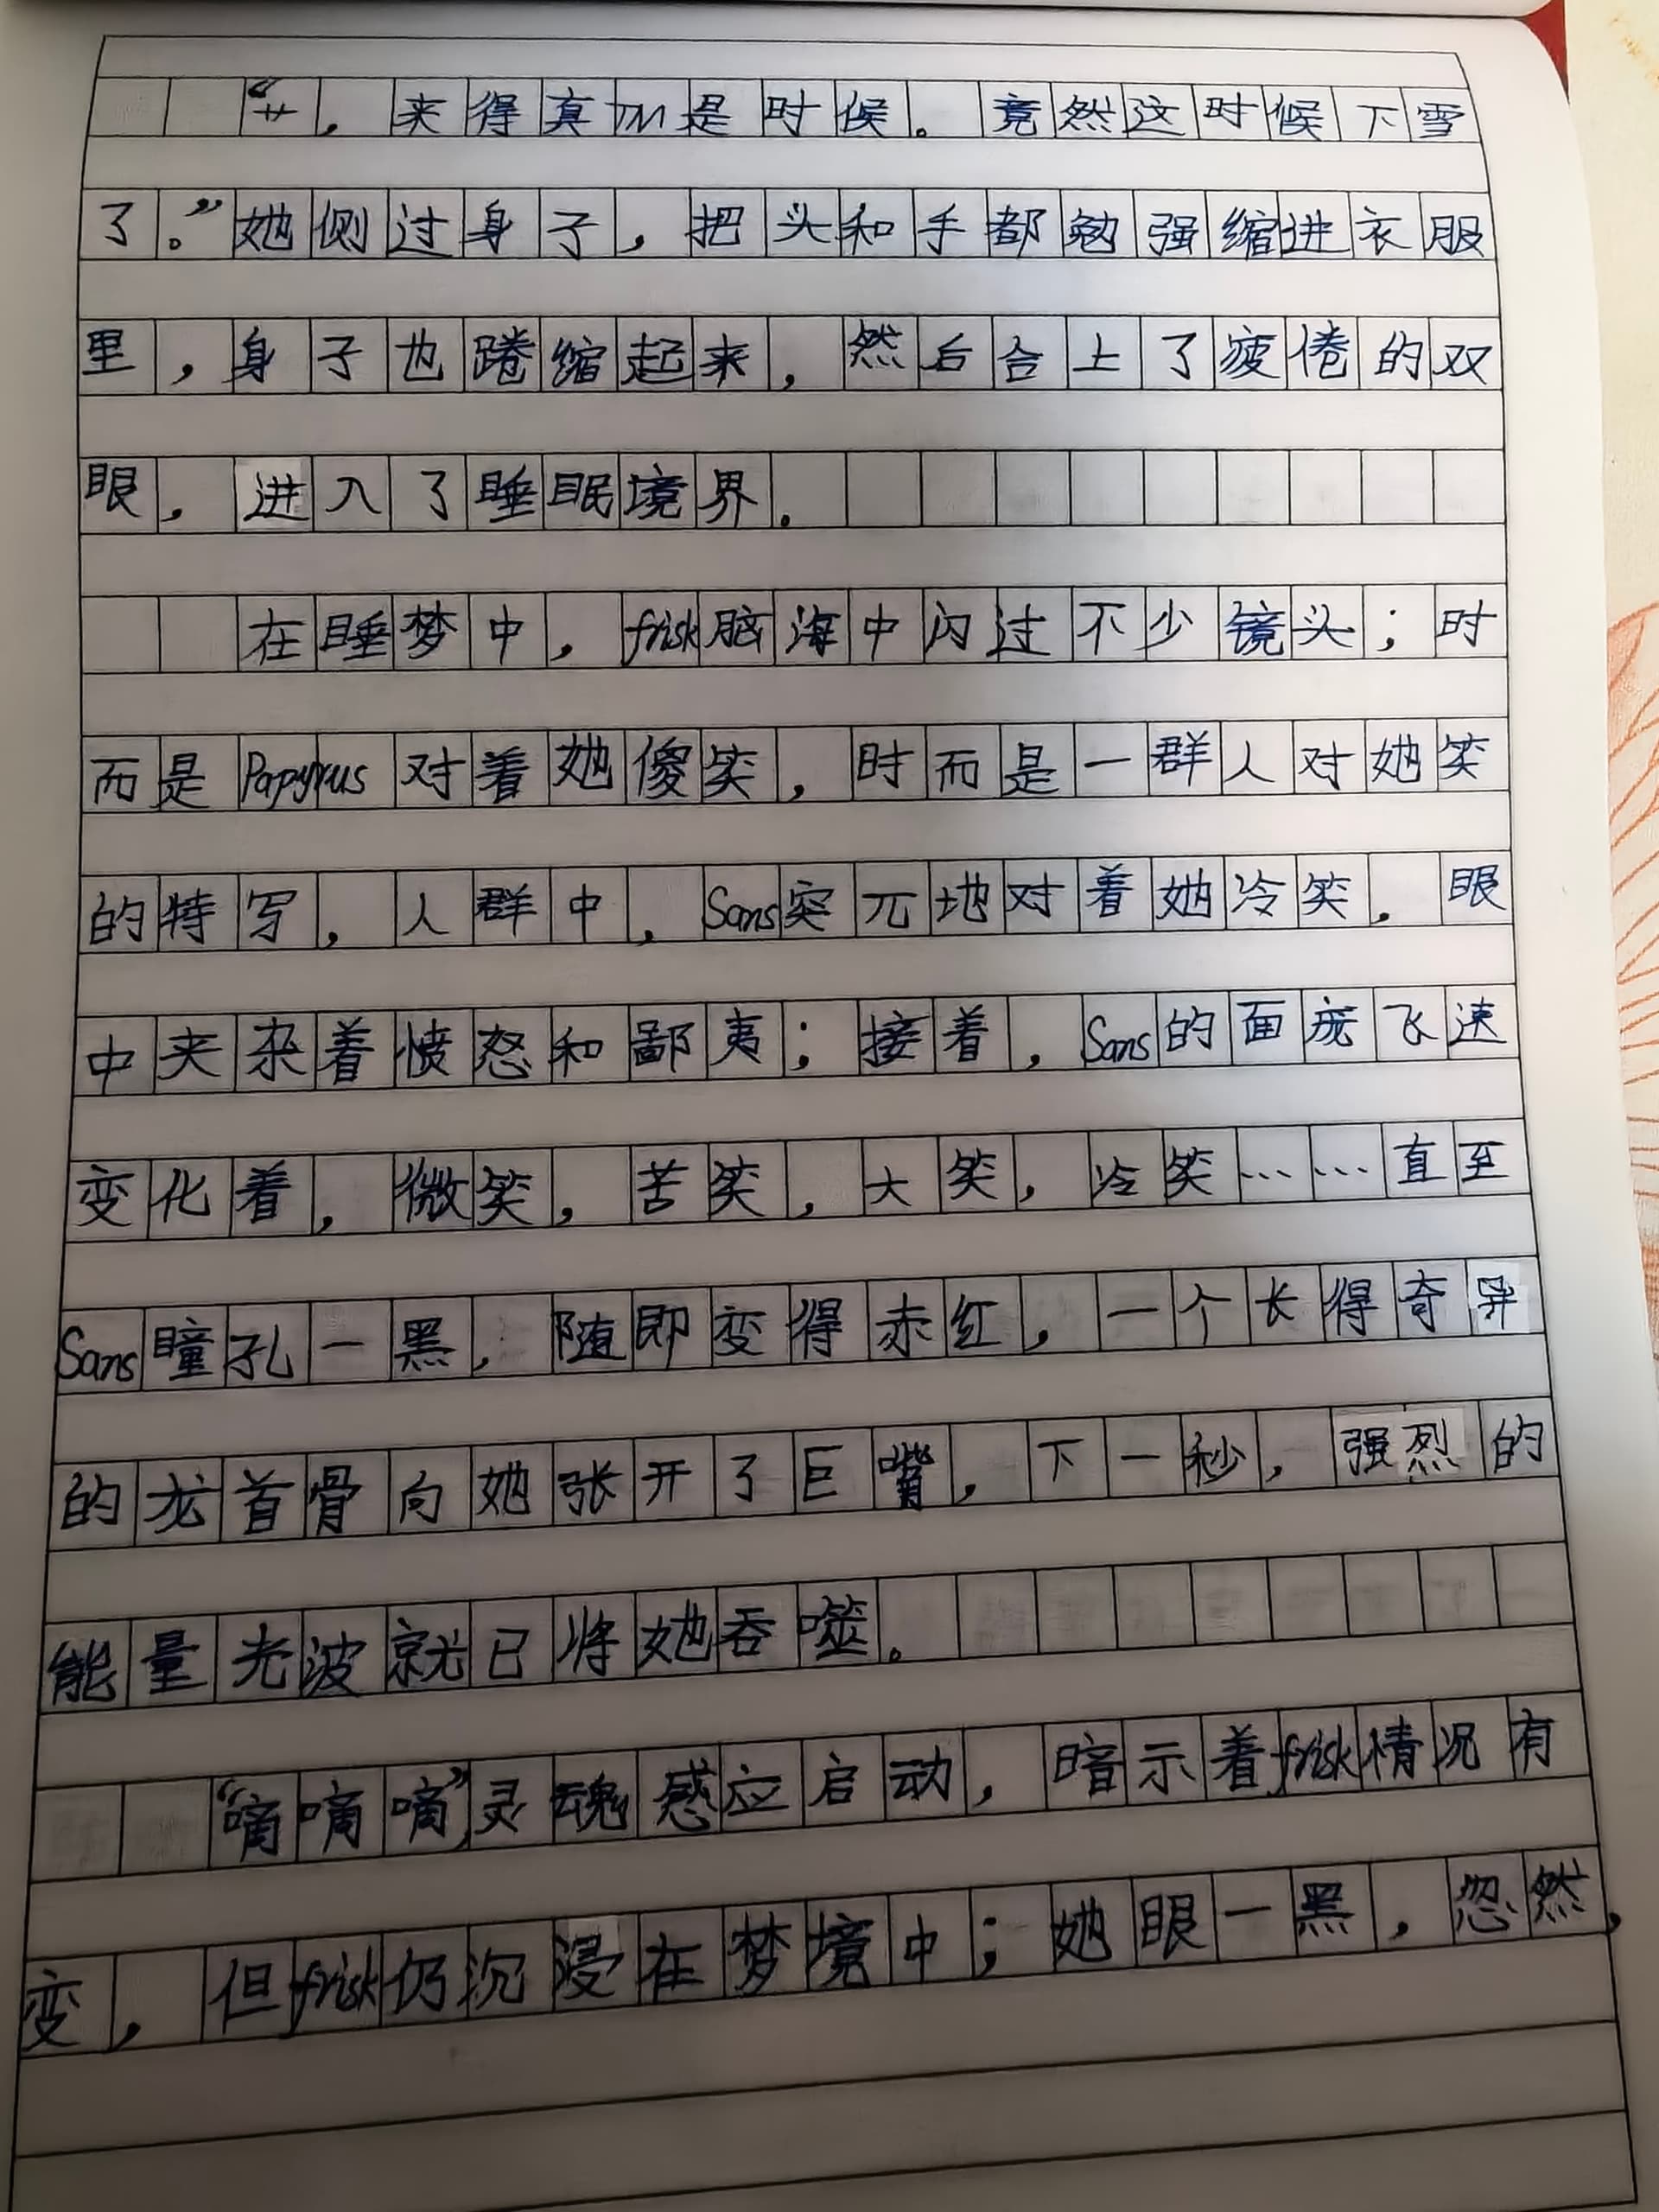 “艹，来得真TM是时候。竟然这时候下雪
了。”她侧过身子，把头和手都勉强缩进衣服
里，身子也蜷缩起来，然后合上了疲倦的双
眼，进入了睡眠境界。
在睡梦中，frisk脑海中闪过不少镜头；时
而是Papyrus对着她傻笑，时而是一群人对她笑
的特写，人群中，Sans突兀地对着她冷笑，眼
中夹杂着愤怒和鄙夷；接着，Sans的面庞飞速
变化着，微笑，苦笑，大笑，冷笑……直至
Sans瞳孔一黑，随即变得赤红，一个长得奇异
的龙首骨向她张开了巨嘴，下一秒，强烈的
能量光波就已将她吞噬。
“嘀嘀嘀”，灵魂感应启动，暗示着frisk情况有
变，但frisk仍沉浸在梦境中；她眼一黑，忽然，